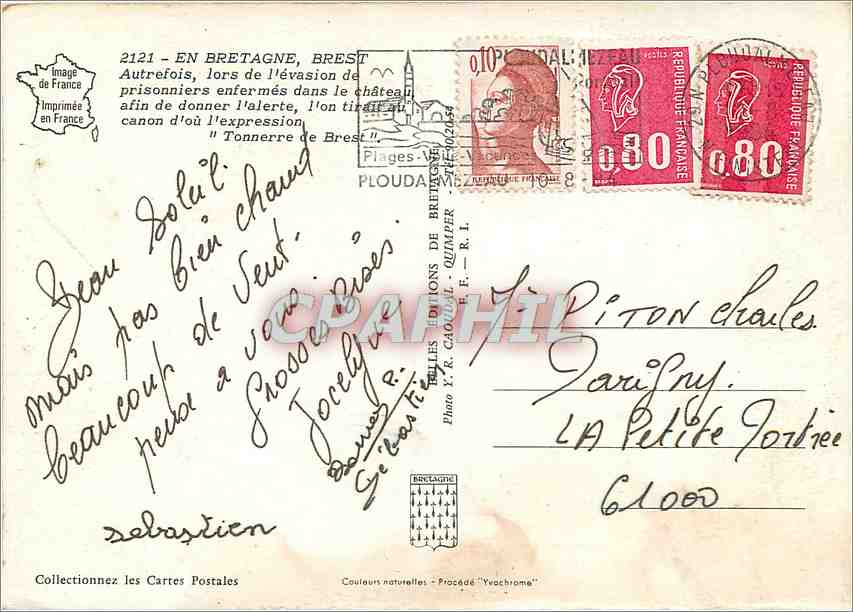 2121 - EN BRETAGNE, BREST
Autrefois, lors de l'évasion de
prisonniers enfermés dans le château,
afin de donner l'alerte, l'on tirait au
canon d'où l'expression
" Tonnerre de Brest".
Image
de France
Imprimée
en France
PLOUDALMEZEAU
Plages - Vacances
PLOUDALMEZEAU 10-8
0,10
REPUBLIQUE FRANÇAISE
POSTES
0,80
REPUBLIQUE FRANÇAISE
0,80
REPUBLIQUE FRANÇAISE
Beau Soleil.
mais pas bien chaud
beaucoup de vent.
pense a vous.
Grosses Bises.
Jocelyne
Sébastien
sebastien
BELLES EDITIONS DE BRETAGNE
Photo Y. R. CAOUDAL - QUIMPER
E. F. - R. I.
CPAPHIL
PITON Charles
Marigny.
LA Petite
61000
BRETAGNE
Collectionnez les Cartes Postales
Couleurs naturelles - Procédé "Yvochrome"